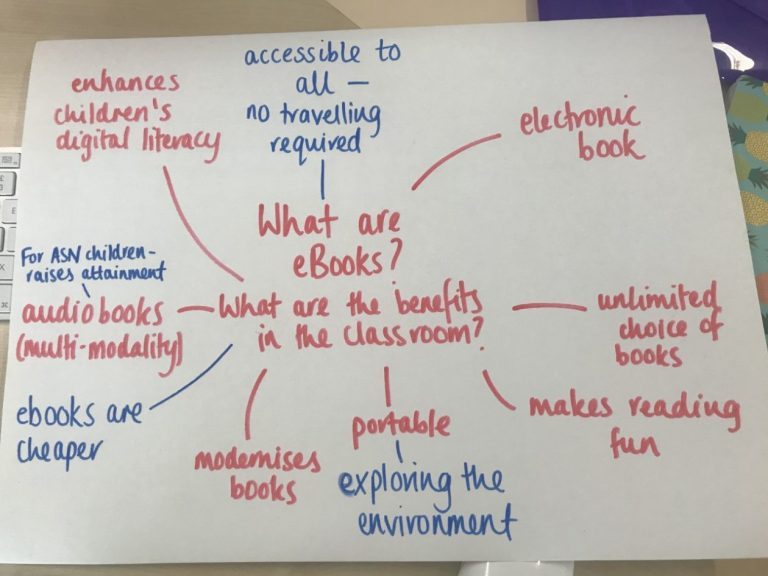 enhances
children's
digital literacy
accessible to
all —
no travelling
required
electronic
book
What are
eBooks?
What are the benefits
in the classroom?
For ASN children-
raises attainment
audiobooks
(multi-modality)
unlimited
choice of
books
ebooks are
cheaper
modernises
books
portable
exploring the
environment
makes reading
fun